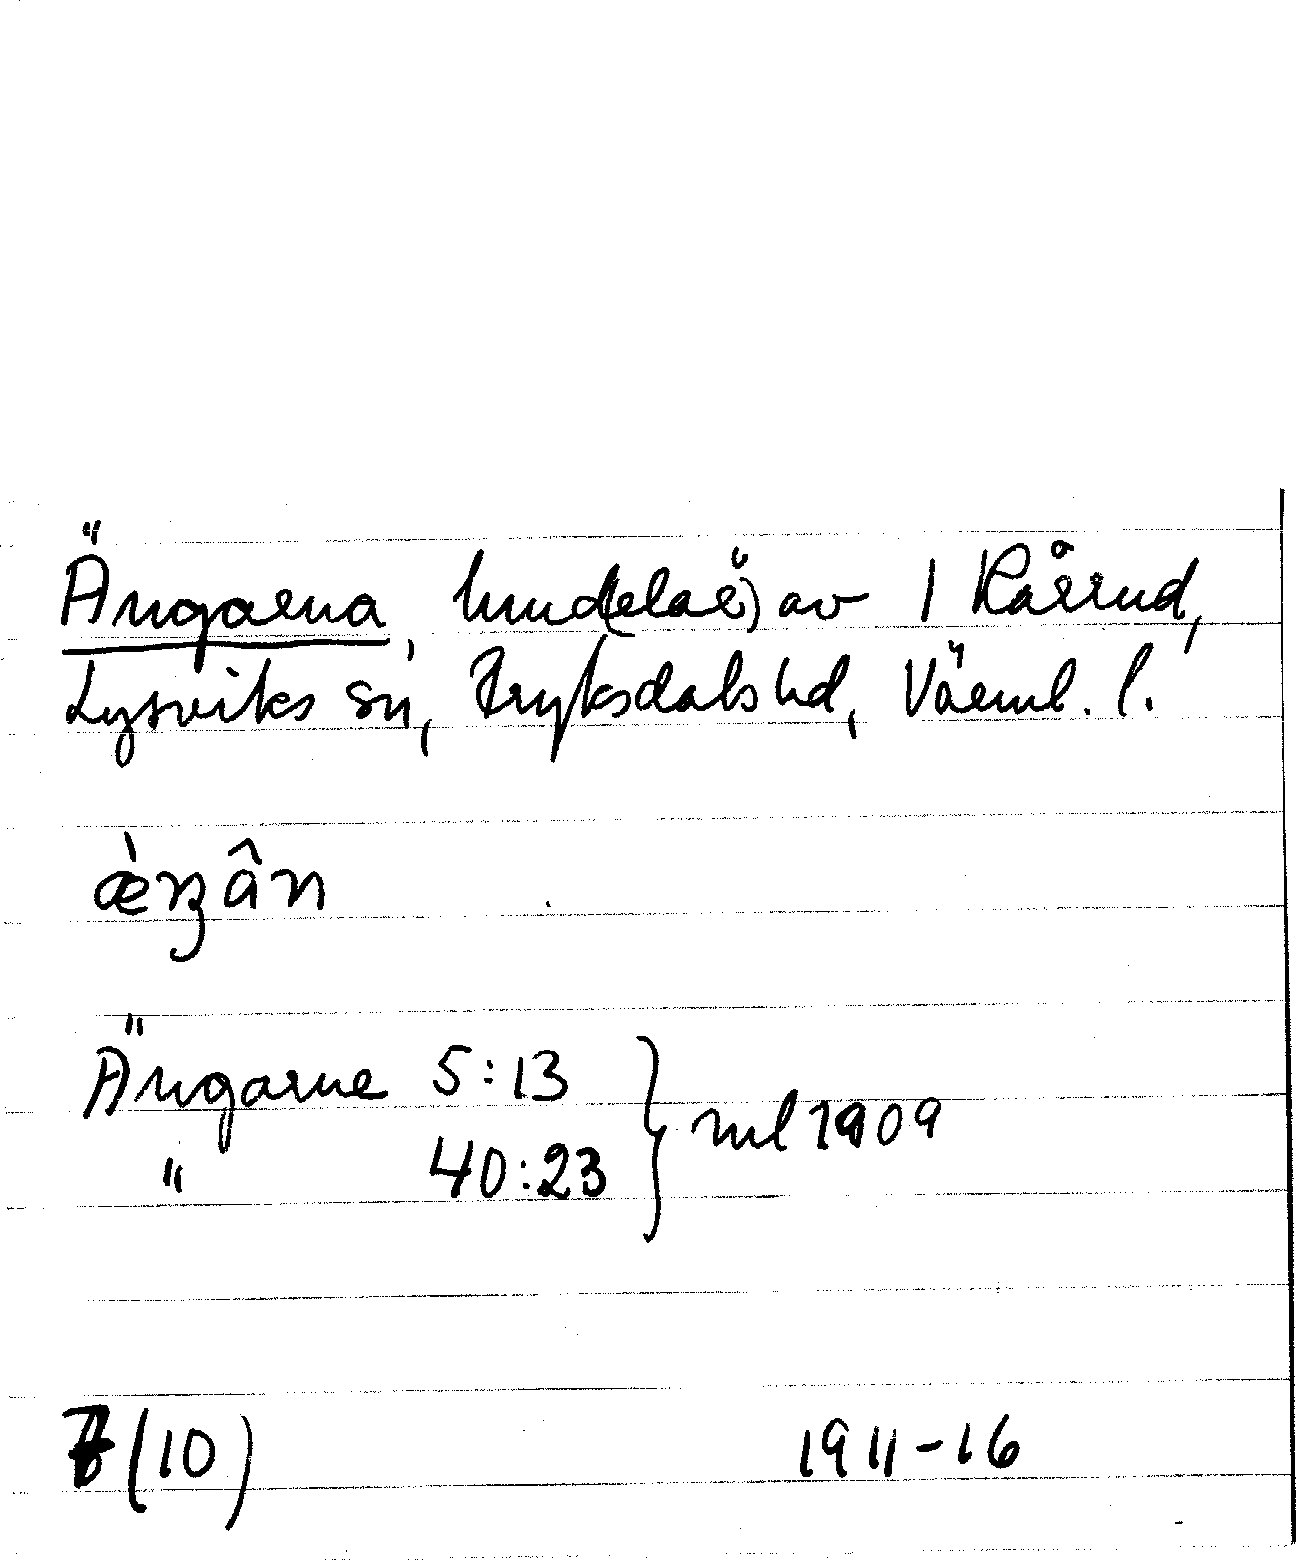 Ängarna, hmd(elar) av 1 Rårud,
Lysviks sn, Fryksdals hd, Värml. l.
æ̀ŋgân
Ängarne 5:13
" 40:23 } ml 1909
(10) 1911-16